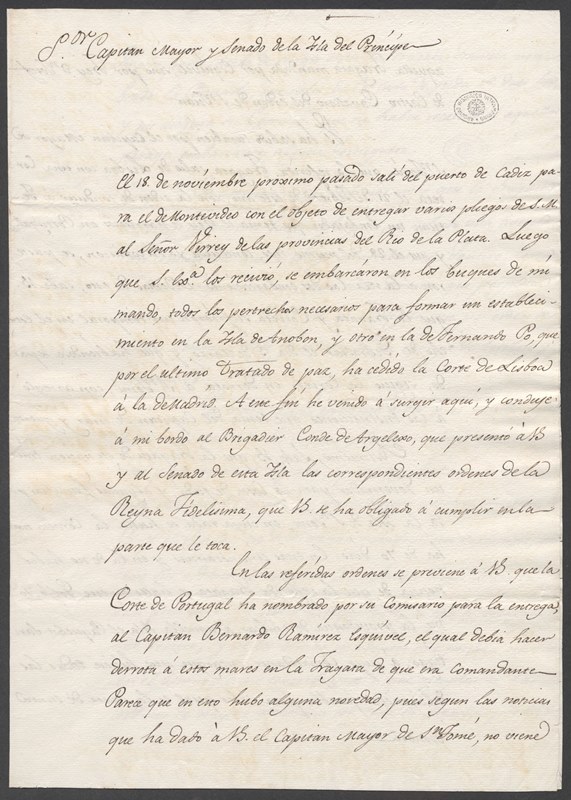 S.or Capitan Mayor y Senado de la Isla del Príncipe
El 18. de noviembre proximo pasado salí del puerto de Cadiz pa-
ra el de Montevideo con el objeto de entregar varios pliegos de S. M.
al Señor Virrey de las provincias del Rio de la Plata. Luego
que S. Exa. los recivió, se embarcáron en los buques de mi
mando, todos los pertrechos necesarios para formar un estableci-
miento en la Isla de Anobon, y otro en la de Fernando Po, que
por el ultimo Tratado de paz, ha cedido la Corte de Lisboa
á la de Madrid. A este fin he venido à surgir aquí, y conduje
à mi bordo al Brigadier Conde de Argelexo, que presentó à V.S
y al Senado de esta Isla las correspondientes ordenes de la
Reyna Fidelisima, que V.S. se ha obligado à cumplir en la
parte que le toca.
En las reféridas ordenes se previene à V.S. que la
Corte de Portugal ha nombrado por su Comisario para la entrega,
al Capitan Bernardo Ramirez Esquivel, el qual debia hacer
derrota à estos mares en la Fragata de que era Comandante
Parece que en esto hubo alguna novedad, pues segun las noticias
que ha dado à V.S. el Capitan Mayor de Sn. Tomé, no viene